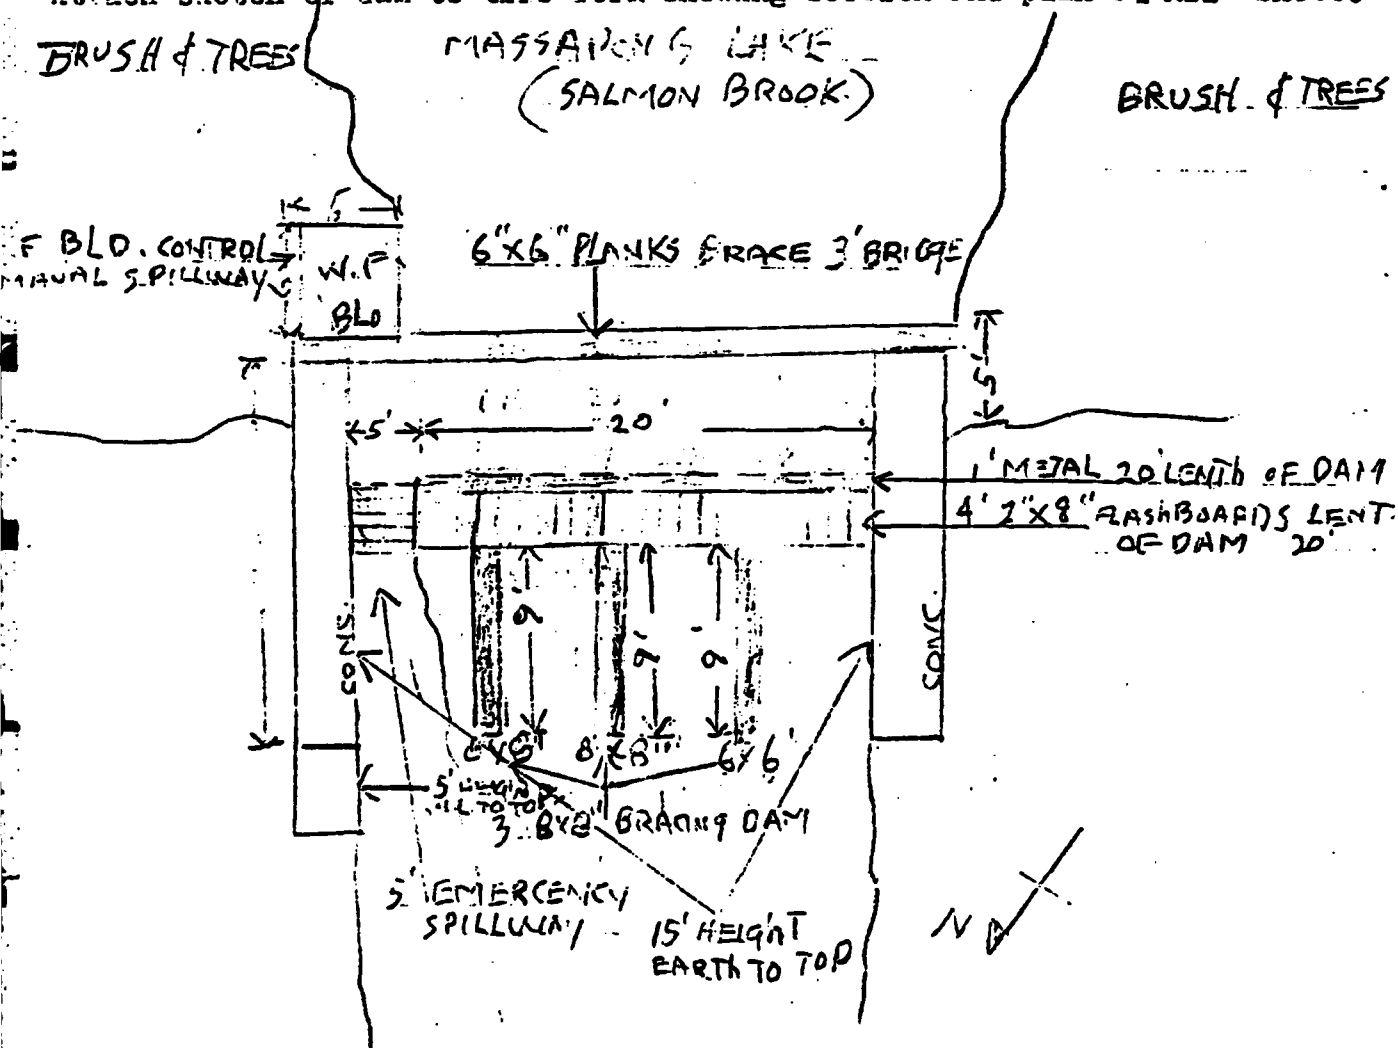 BRUSH & TREES
LAKE
(SALMON BROOK.)
BRUSH. & TREES
F BLD. CONTROL
SPILLWAY
W.F
BLD
6"X6" PLANKS BRACE 3' BRIDGE
5'
5'
20'
1' METAL 20' LENTH OF DAM
4' 2"X8" FLASHBOARDS LENT.
OF DAM 20'
CONC.
9'
9'
9'
CONC.
8 X 8"
6 X 6'
3 8X8" BRACING DAM
5' EMERCENCY
SPILLWAY
15' HEIGHT
EARTH TO TOP
N